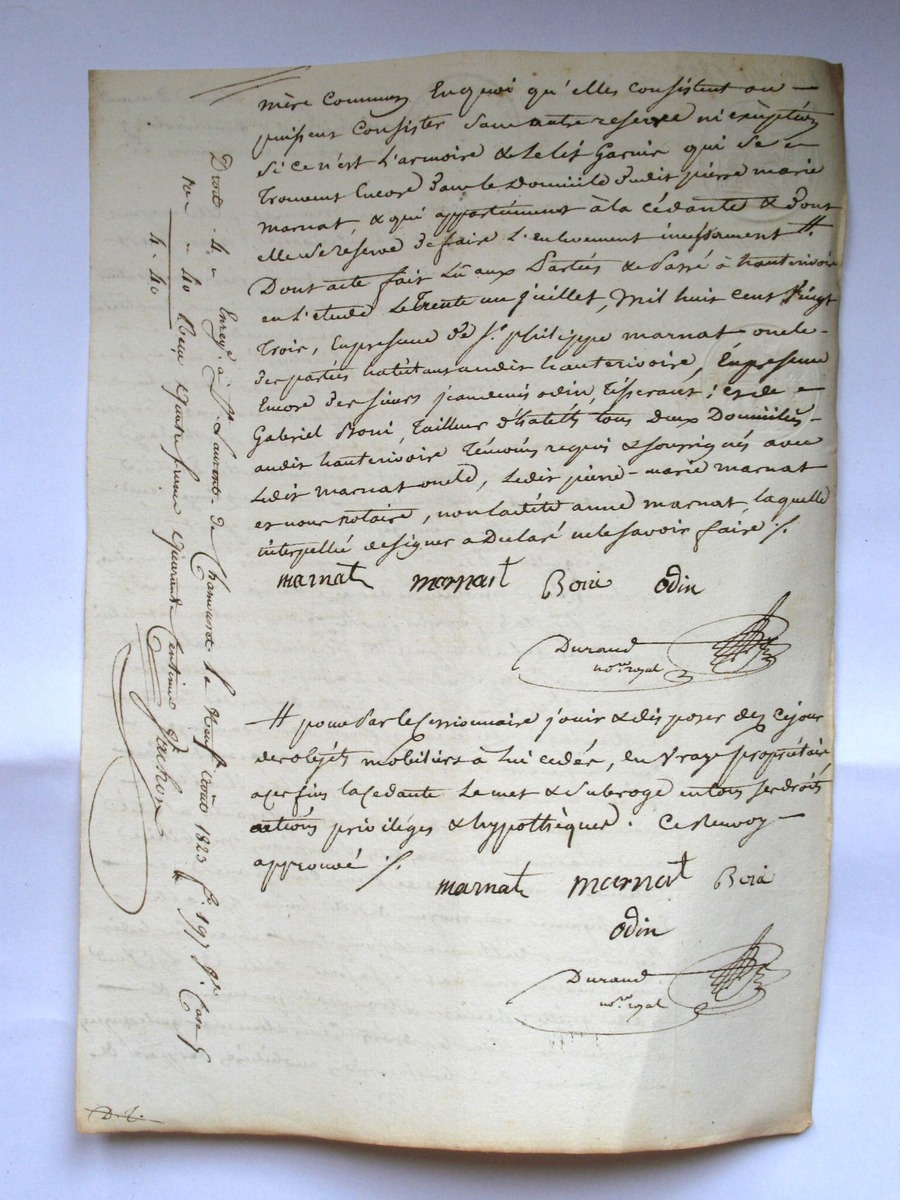 mère Commune Enquoi qu'elles consistent ou
puissent Consister Sans autre reserve ni exèption
Si ce n'est L'armoire & Le lit Garnis qui se
Trouvent Encore Dans le Domicile dudit pierre marie
marnat, & qui appartiennent à la cédante & Dont
elle se reserve De faire L'enlevement incessament #.
Dont acte fait Lû aux Parties & Passé à hauterivoire
en L'etude Le Trente un Juillet, Mil huit cent Vingt
Trois, En presence De Sr. philippe marnat oncle
des parties habitant audit hauterivoire, En presence
Encore des sieurs jean denis odin, Tisserant; et de
Gabriel Boni, Tailleur d'habits tous Deux Domiciliés
audit hauterivoire Témoins requis & soussignés avec
Ledit marnat oncle, Ledit pierre-marie marnat
et nous Notaire, non ladite anne marnat, laquelle
interpellée de signer a Déclaré ne le savoir faire ./.
marnat marnat Boni odin
Durand
nore. royal
# pour Par le Cessionnaire jouir & disposer dez cejour
des objets mobiliers à Lui cedés, en Vraye propriétaire
a ces fins la cedante Le met & Subroge en tous ses droits
actions priviléges & hypothèques. Ce Renvoy
approuvé ./.
marnat marnat Boni
odin
Durand
nore. royal
Droit 4 " Enregé. à St. Laurent de Chamousset le Neuf août 1823 fo. 197 Vo. Case 5
10e " 40 Reçu Quatre francs Quarante Centimes
4. 40